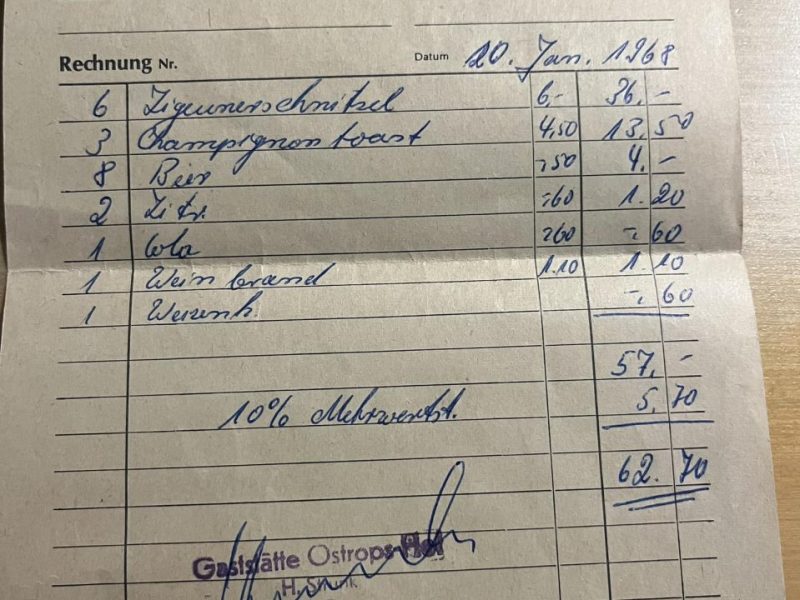 Rechnung Nr. Datum 20. Jan. 1968
6 Zigeunerschnitzel 6,- 36.-
3 Champignontoast 4,50 13.50
8 Bier -,50 4.-
2 Zitr. -,60 1.20
1 Cola -,60 -.60
1 Weinbrand 1.10 1.10
1 Weizenk. -.60
57.-
10% Mehrwertst. 5.70
62.70
Gaststätte Ostrops Hof
H.